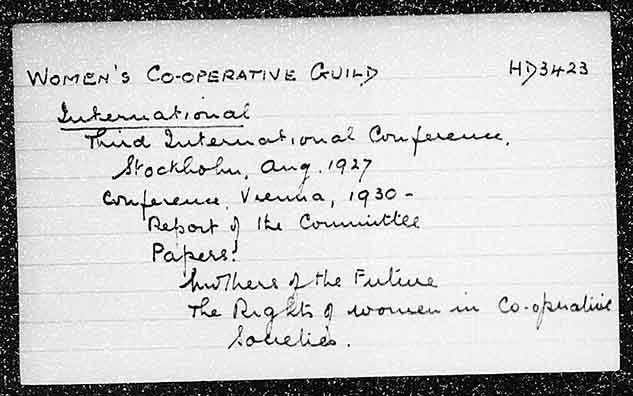 WOMEN'S CO-OPERATIVE GUILD HD3423
International
Third International Conference,
Stockholm, Aug. 1927
Conference, Vienna, 1930 -
Report of the Committee
Papers:
Mothers of the Future
The Rights of women in Co-operative
Societies.